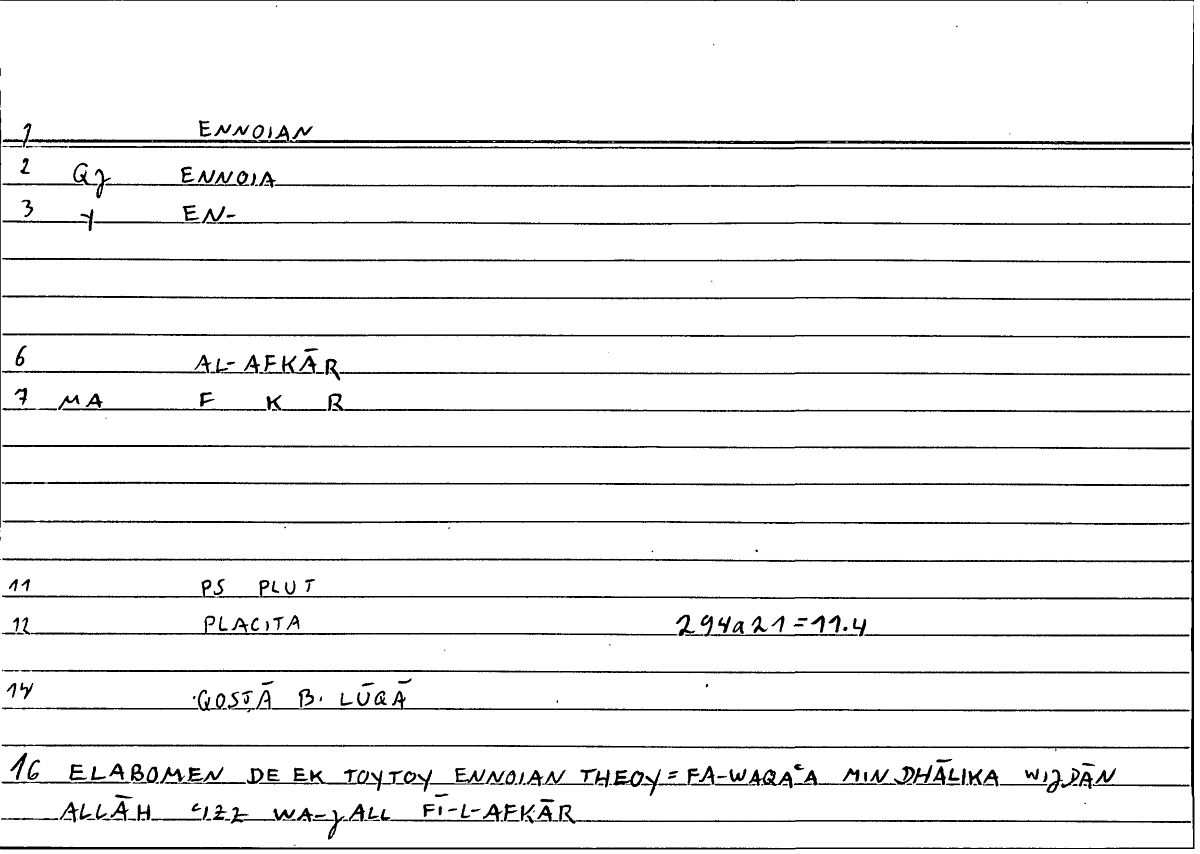 1 ENNOIAN
2 Qj ENNOIA
3 y EN-
6 AL-AFKĀR
7 MA F K R
11 PS PLUT
12 PLACITA 294a21=11.4
14 QOSṬĀ B. LŪQĀ
16 ELABOMEN DE EK TOYTOY ENNOIAN THEOY = FA-WAQAʿA MIN DHĀLIKA WIJDĀN
ALLĀH ʿIZZ WA-JALL FĪ-L-AFKĀR